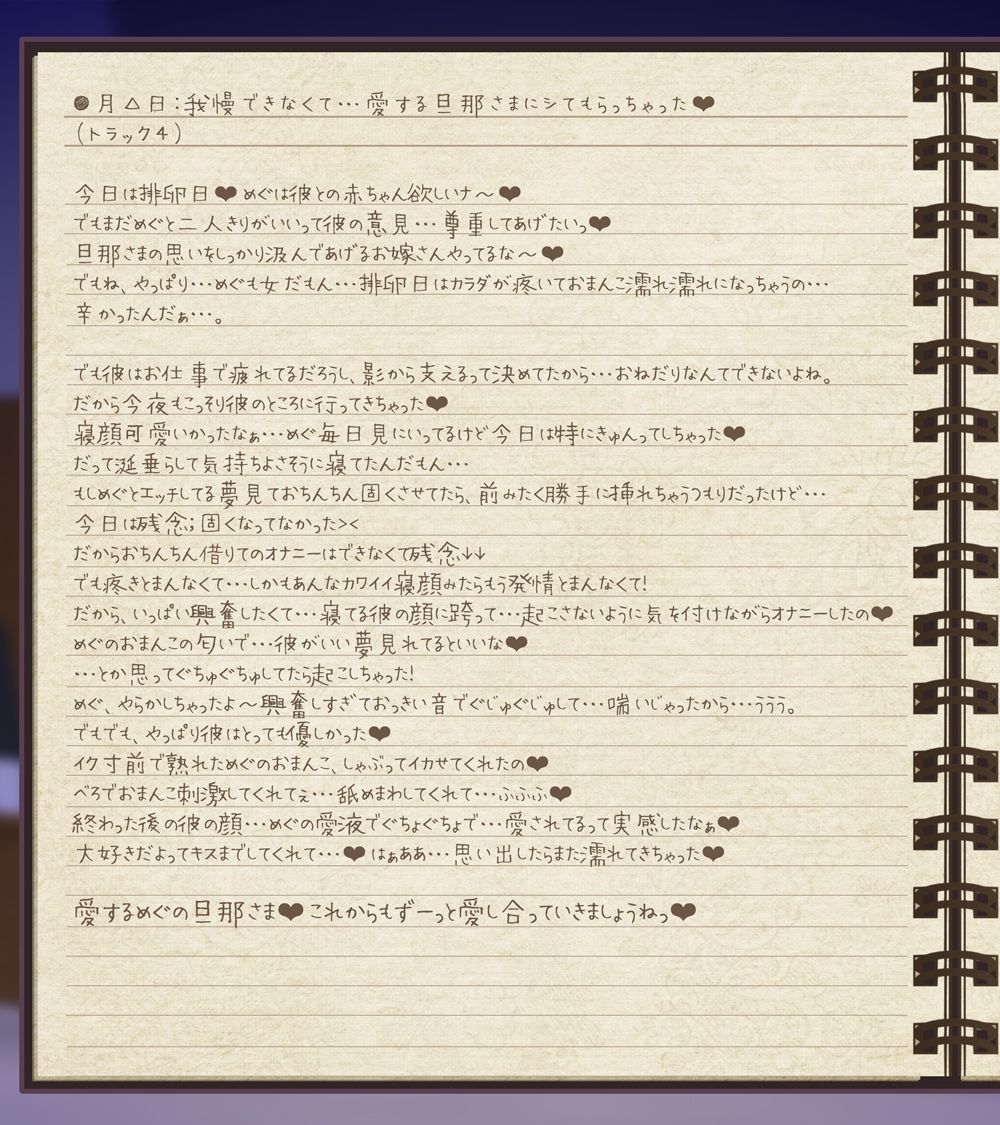 ●月△日：我慢できなくて…愛する旦那さまにシてもらっちゃった❤
（トラック4）
今日は排卵日❤めぐは彼との赤ちゃん欲しいナ～❤
でもまだめぐと二人きりがいいって彼の意見…尊重してあげたいっ❤
旦那さまの思いをしっかり汲んであげるお嫁さんやってるな～❤
でもね、やっぱり…めぐも女だもん…排卵日はカラダが疼いておまんこ濡れ濡れになっちゃうの…
辛かったんだぁ…。
でも彼はお仕事で疲れてるだろうし、影から支えるって決めてたから…おねだりなんてできないよね。
だから今夜もこっそり彼のところに行ってきちゃった❤
寝顔可愛いかったなぁ…めぐ毎日見にいってるけど今日は特にきゅんってしちゃった❤
だって涎垂らして気持ちよさそうに寝てたんだもん…
もしめぐとエッチしてる夢見ておちんちん固くさせてたら、前みたく勝手に挿れちゃうつもりだったけど…
今日は残念；固くなってなかった><
だからおちんちん借りてのオナニーはできなくて残念↓↓
でも疼きとまんなくて…しかもあんなカワイイ寝顔みたらもう発情とまんなくて！
だから、いっぱい興奮したくて…寝てる彼の顔に跨って…起こさないように気を付けながらオナニーしたの❤
めぐのおまんこの匂いで…彼がいい夢見れてるといいな❤
…とか思ってぐちゅぐちゅしてたら起こしちゃった！
めぐ、やらかしちゃったよ～興奮しすぎておっきい音でぐじゅぐじゅして…喘いじゃったから…ううう。
でもでも、やっぱり彼はとっても優しかった❤
イク寸前で熟れためぐのおまんこ、しゃぶってイカせてくれたの❤
べろでおまんこ刺激してくれてぇ…舐めまわしてくれて…ふふふ❤
終わった後の彼の顔…めぐの愛液でぐちょぐちょで…愛されてるって実感したなぁ❤
大好きだよってキスまでしてくれて…❤はぁああ…思い出したらまた濡れてきちゃった❤
愛するめぐの旦那さま❤これからもずーっと愛し合っていきましょうねっ❤